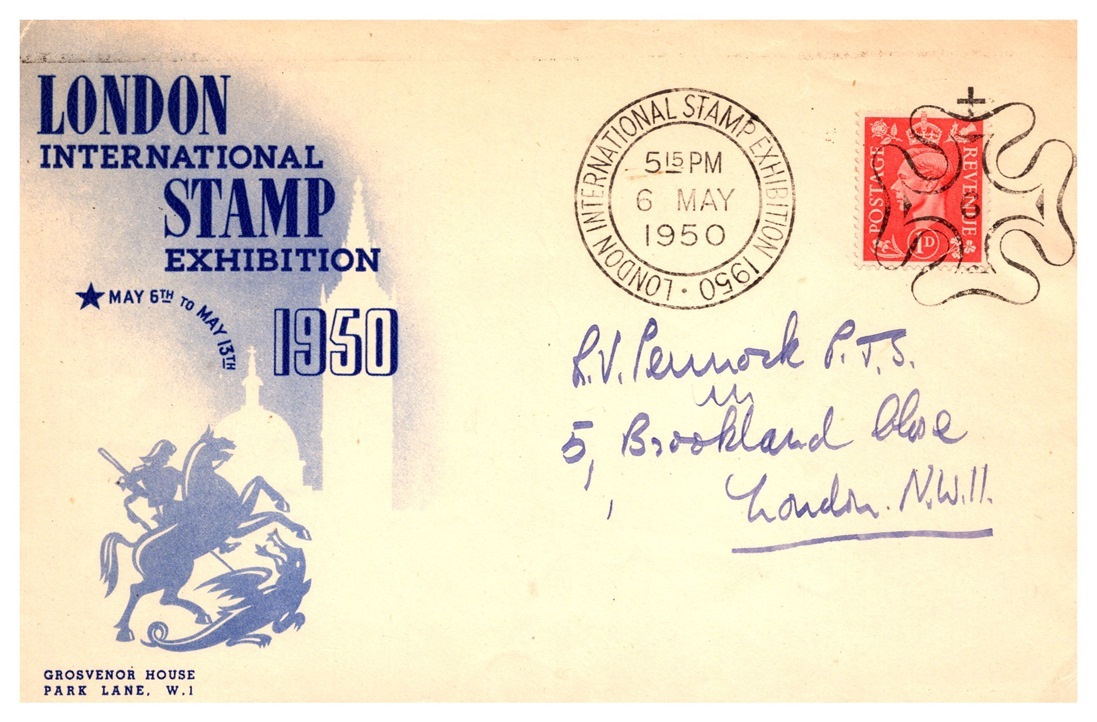 LONDON
INTERNATIONAL
STAMP
EXHIBITION
★ MAY 6TH TO MAY 13TH
1950
GROSVENOR HOUSE
PARK LANE, W.1
LONDON INTERNATIONAL STAMP EXHIBITION 1950 ·
5 15 PM
6 MAY
1950
POSTAGE
REVENUE
1D
L.V. Pennock P.T.S.
5, Brookland Close
London. N.W.11.